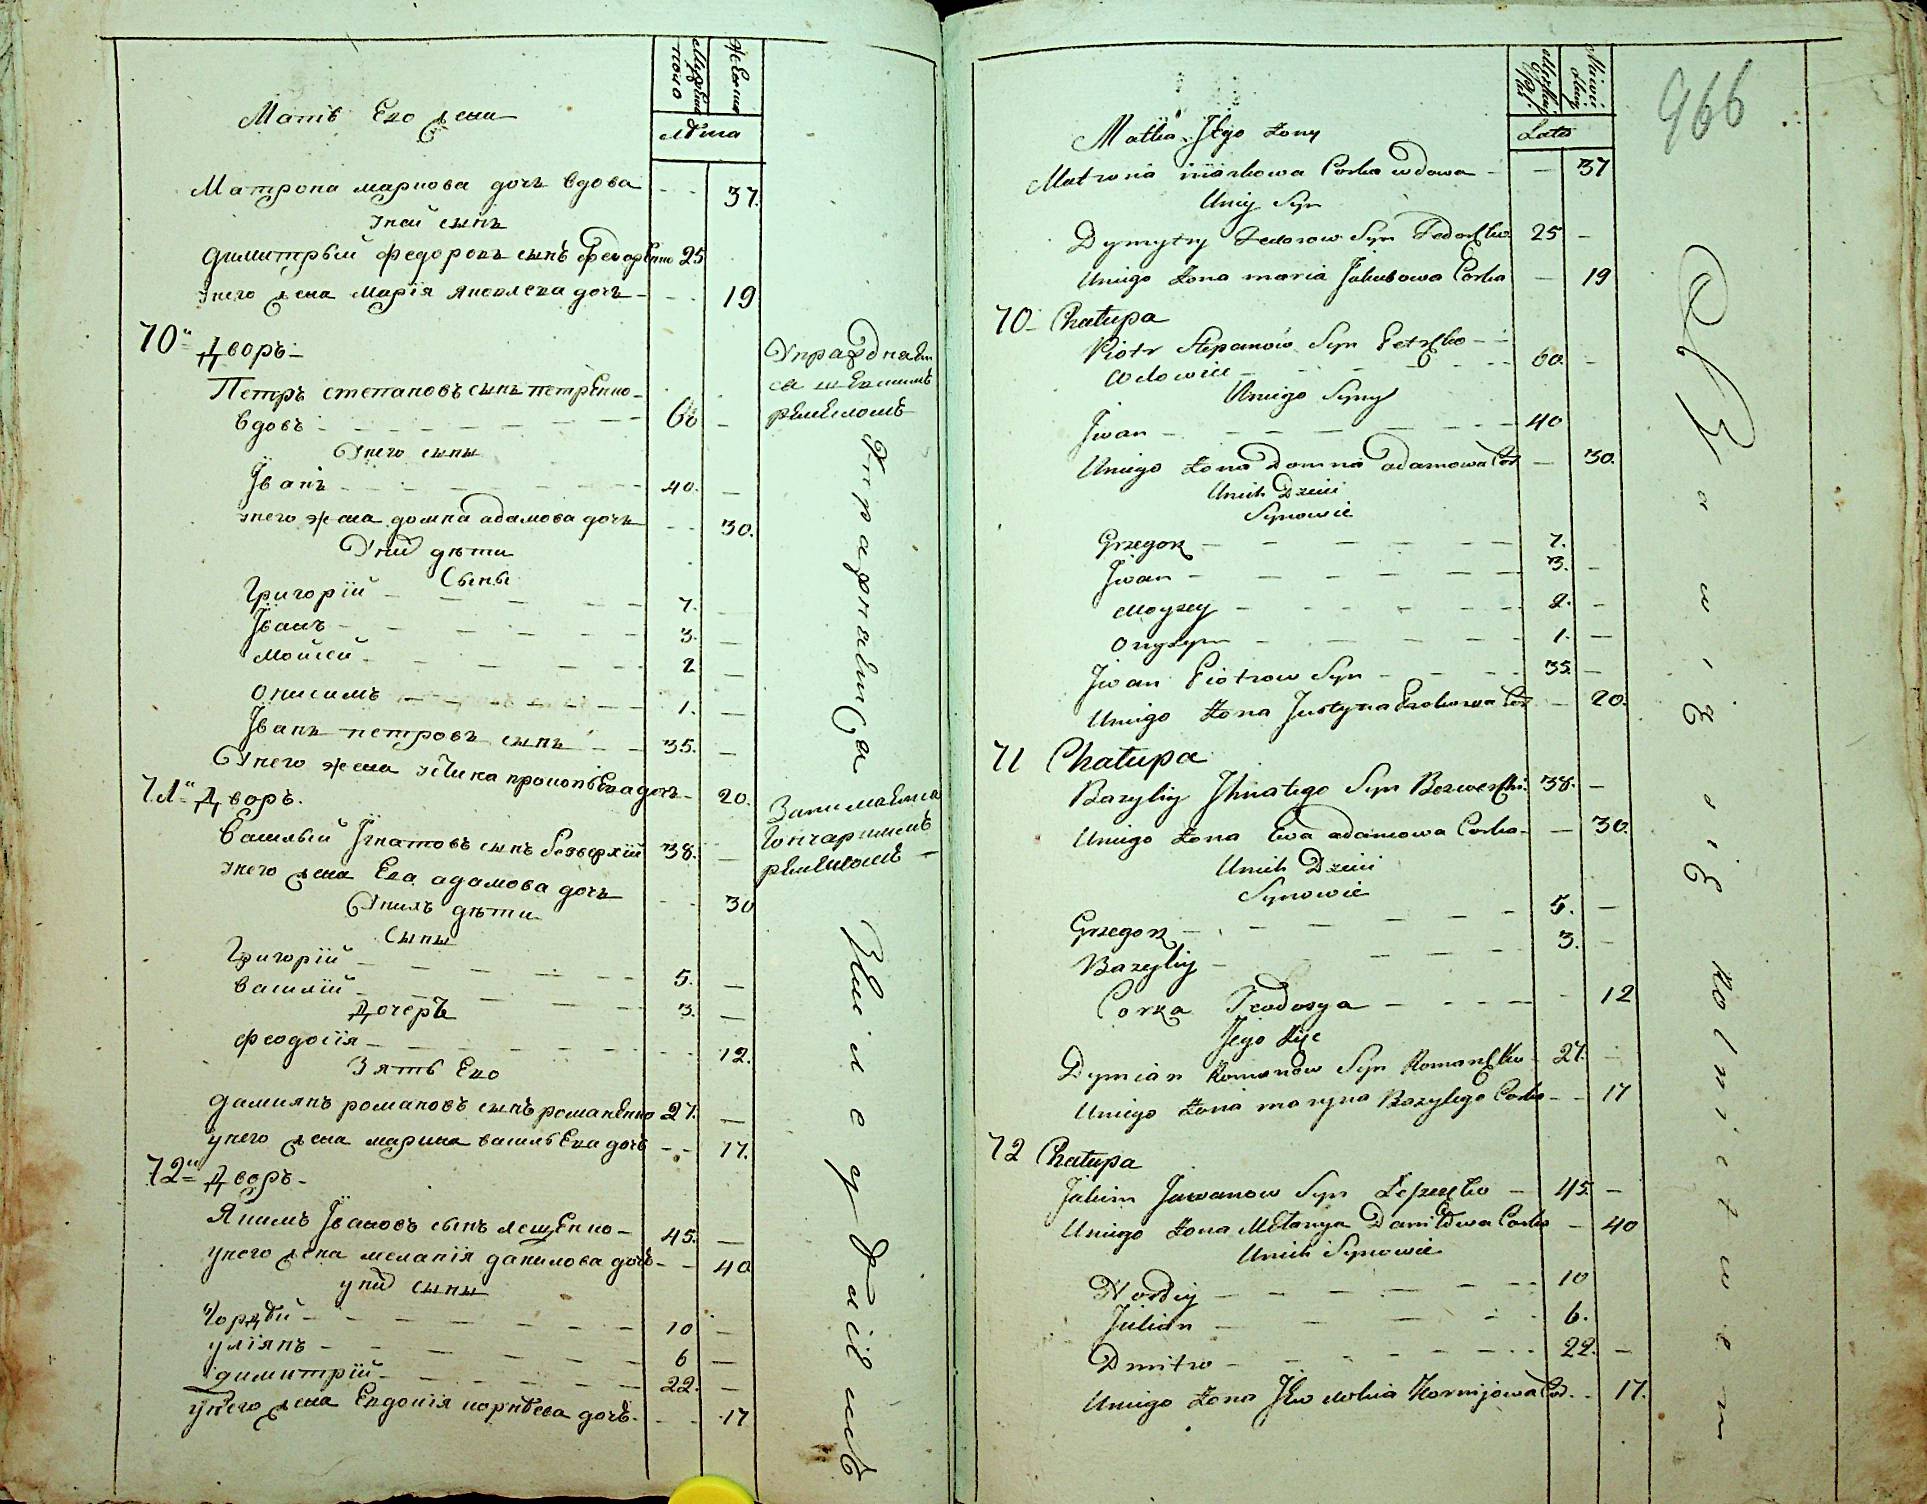 Мужеска полу
Женска
лѣта
Мать Его жены
Матрона маркова дочь вдова - - 37.
У ней сынъ
Димитрый федоровъ сынъ федоренко 25
У него жена Марія яковлева дочь - - 19
70. Дворъ
Упражняет
Петръ степановъ сынъ петренко
ся шевскимъ
вдовъ - 60 -
ремесломъ
У него сыны
Іванъ - 40. -
у него жена домна адамова дочь - - 30.
У них дѣти
Сыны
Григорій - 7. -
Іванъ - 3. -
Мойсей - 2 -
Онисимъ - 1. -
Іванъ петровъ сынъ - 35. -
У него жена Устина прокопіева дочь - 20.
71. Дворъ.
Занимается
Гончарнимъ
Василый Ігнатовъ сынъ безверхій 38. -
ремесломъ
У него жена Ева адамова дочь - - 30
У нихъ дѣти
Сыны
Григорій - 5. -
Василій - 3. -
Дочерь
Феодосія - 12.
Зять Его
Дамиянъ романовъ сынъ романенко 27. -
у него жена марина васильева дочь - - 17.
72. Дворъ -
Якимъ Івановъ сынъ лещенко - 45. -
у него жена меланія данилова дочь - - 40
у них сыны
Гордѣй - 10 -
уліянъ - 6 -
димитрій - 22. -
у него жена Евдокія корнѣева дочь - - 17
Упражняются
Земледѣліемъ
966
Lata
Matka Jego Żony
Matrona markowa Corka wdowa - - 37
U niey Syn
Dymytry Fedorow Syn Fedorenko 25 -
U niego Żona maria Jakubowa Corka - 19
70 - Chałupa
Piotr Stepanów Syn Petrenko -
wdowiec - 60. -
U niego Syny
Jwan - 40
U niego Żona Domna adamowa Cor - 30.
U nich Dzieci
Synowie
Grzegorz - 7.
Jwan - 3. -
Moyzey - 2. -
Onyzym - 1. -
Jwan Piotrow Syn - 35. -
U niego Żona Justyna Prokopowa Cor - 20.
71 Chałupa
Bazyliy Jhnatego Syn Bezwerchi. 38. -
U niego Żona Ewa adamowa Corka - - 30.
U nich Dzieci
Synowie
Grzegorz - 5. -
Bazyliy - 3. -
Corka Teodosya - - 12
Jego Zięć
Dymian Romanow Syn Romanenko - 27. -
U niego Żona maryna Bazylego Corka - - 17
72 Chałupa
Jakim Jwanow Syn Leszczenko - 45 -
U niego Żona Melanya Daniłowa Corka - 40
U nich Synowie
Hordiy - 10
Julian - 6.
Dmitro - 22. -
U niego Żona Jewdokia Kornijowa Cor. - 17.
rolnictwem